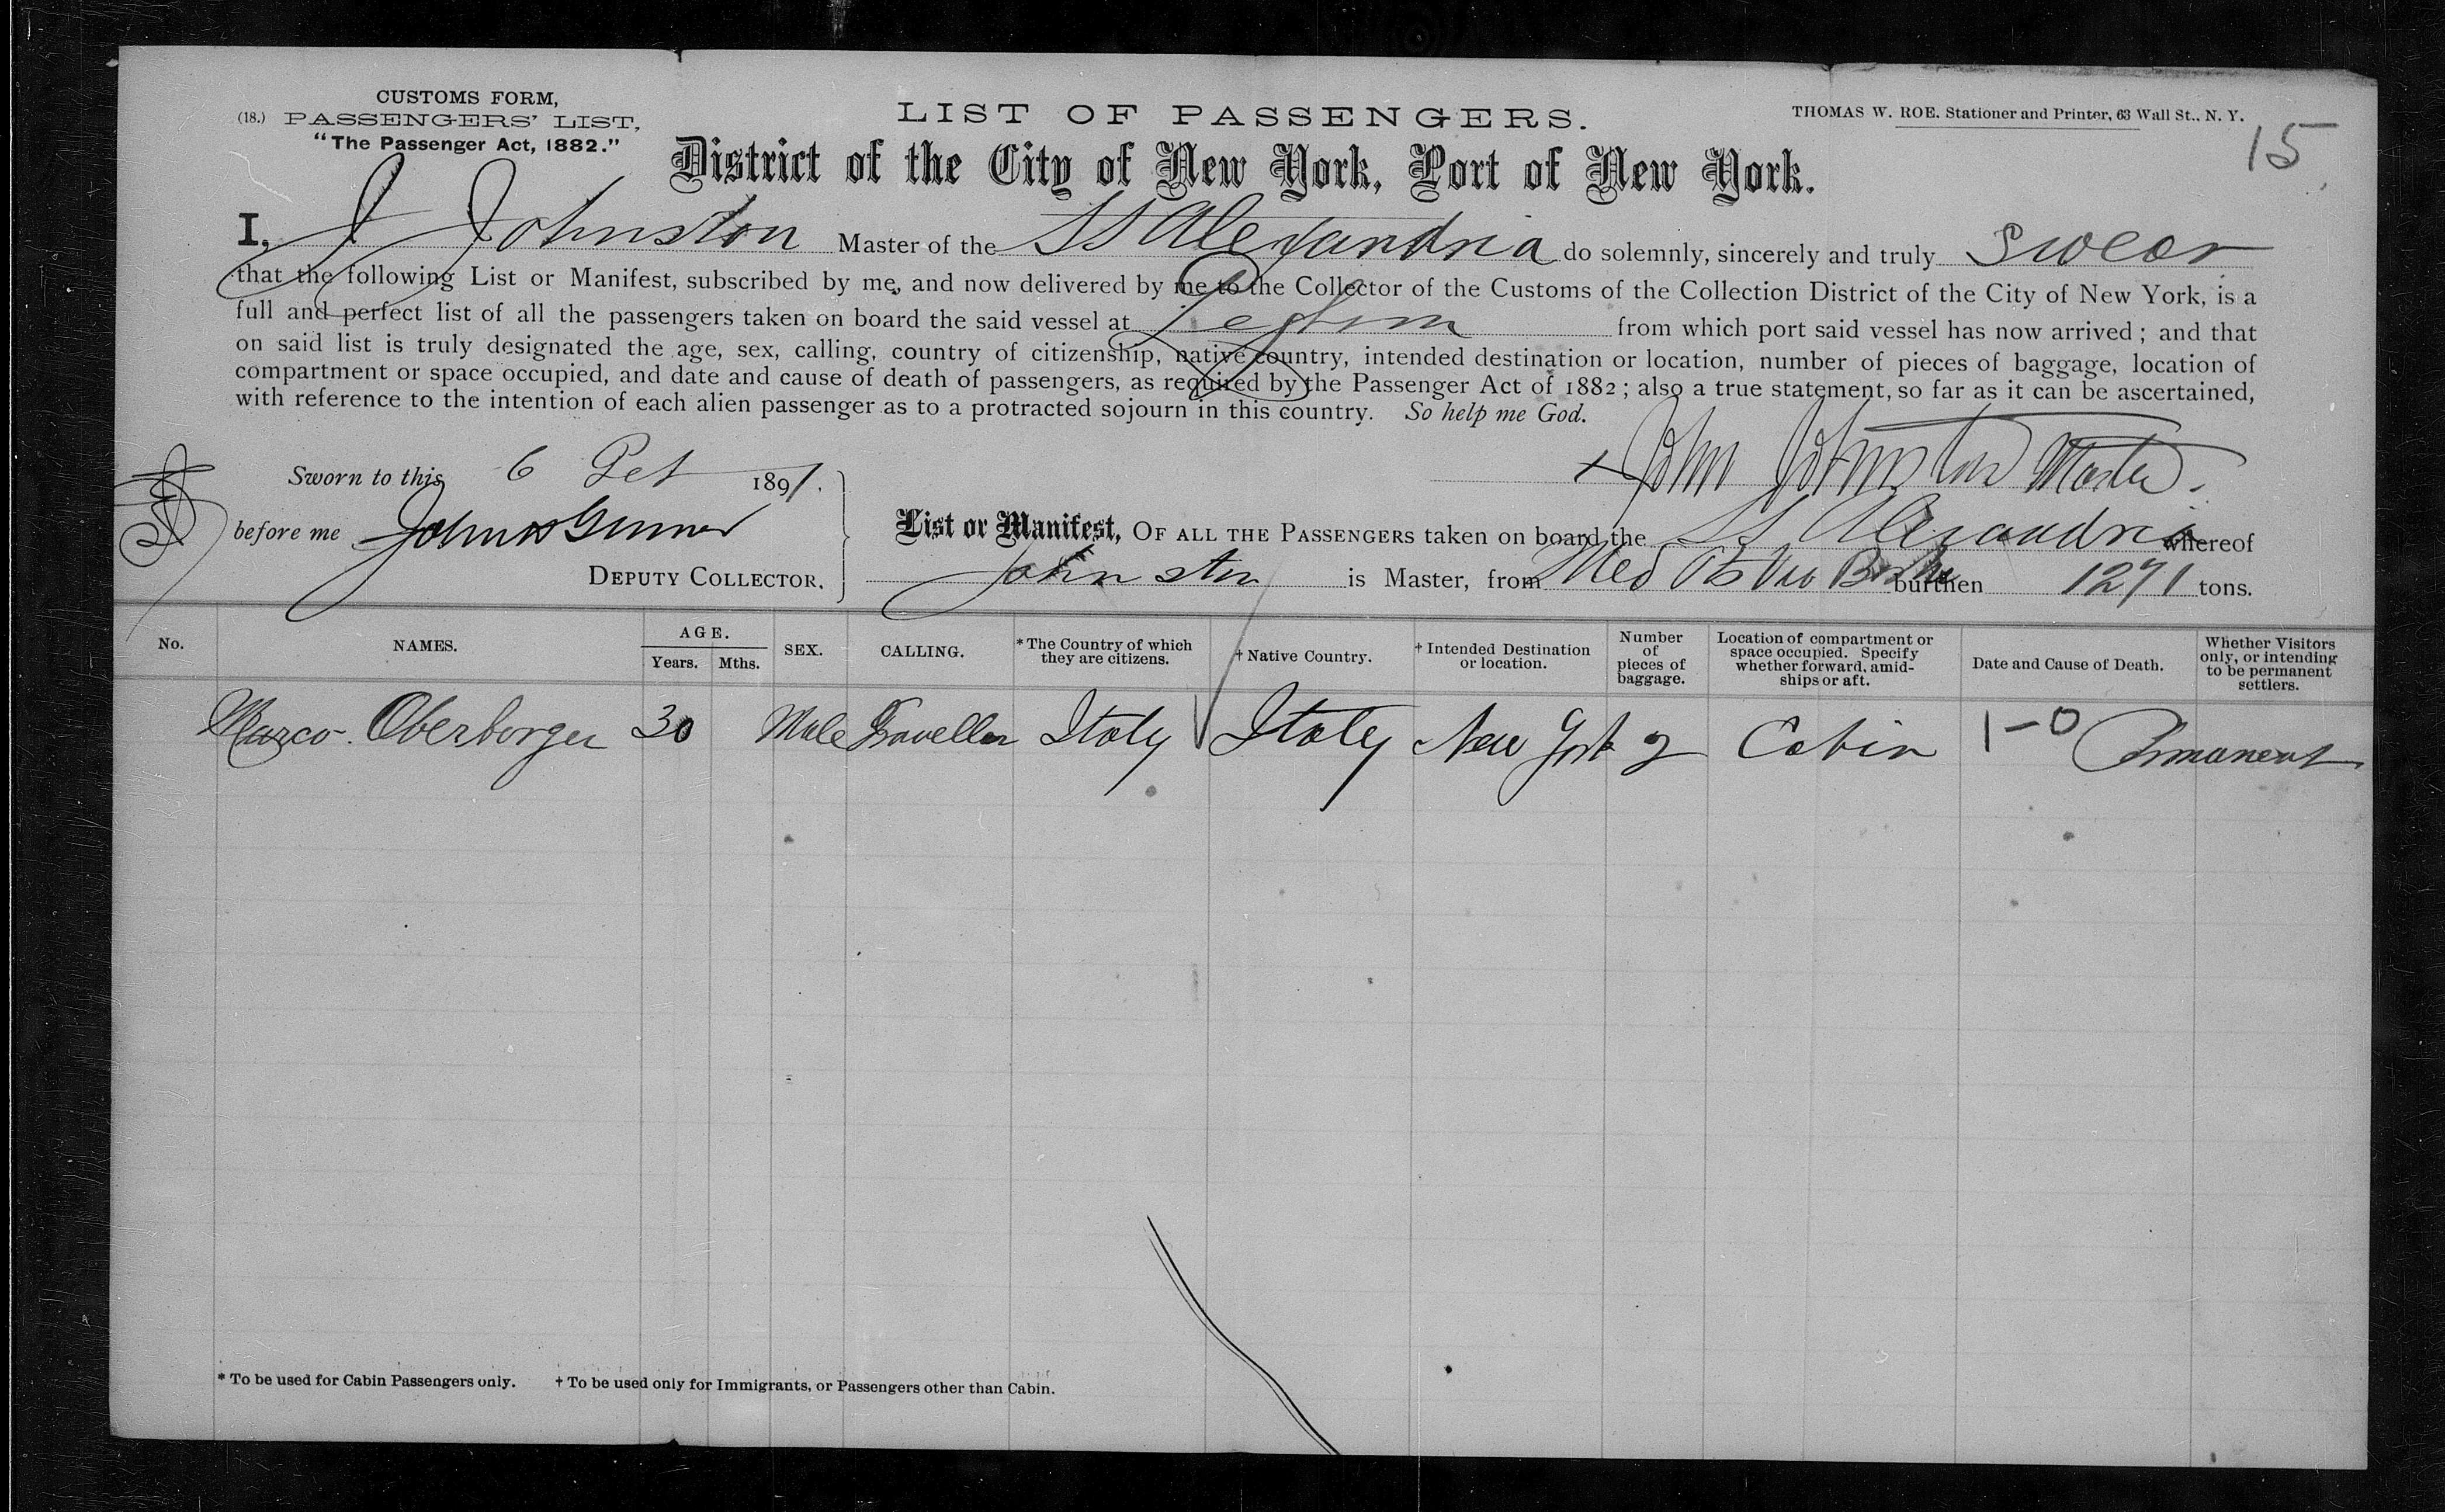 CUSTOMS FORM,
(18.) PASSENGERS' LIST,
"The Passenger Act, 1882."
LIST OF PASSENGERS.
THOMAS W. ROE. Stationer and Printer, 63 Wall St., N. Y.
15
District of the City of New York, Port of New York.
I, J Johnston Master of the SS Alexandria do solemnly, sincerely and truly swear
that the following List or Manifest, subscribed by me, and now delivered by me to the Collector of the Customs of the Collection District of the City of New York, is a
full and perfect list of all the passengers taken on board the said vessel at from which port said vessel has now arrived; and that
on said list is truly designated the age, sex, calling, country of citizenship, native country, intended destination or location, number of pieces of baggage, location of
compartment or space occupied, and date and cause of death of passengers, as required by the Passenger Act of 1882; also a true statement, so far as it can be ascertained,
with reference to the intention of each alien passenger as to a protracted sojourn in this country. So help me God.
x John Johnston Master.
Sworn to this 6 1891.
before me John
DEPUTY COLLECTOR.
List or Manifest, OF ALL THE PASSENGERS taken on board the SS Alexandria whereof
Johnston is Master, from Med burthen 1271 tons.
No. NAMES. AGE. Years. Mths. SEX. CALLING. *The Country of which they are citizens. † Native Country. † Intended Destination or location. Number of pieces of baggage. Location of compartment or space occupied. Specify whether forward, amidships or aft. Date and Cause of Death. Whether Visitors only, or intending to be permanent settlers.
Marco Oberborger 30 Male Traveller Italy Italy New York 2 Cabin 1-0 Permanent
* To be used for Cabin Passengers only. † To be used only for Immigrants, or Passengers other than Cabin.